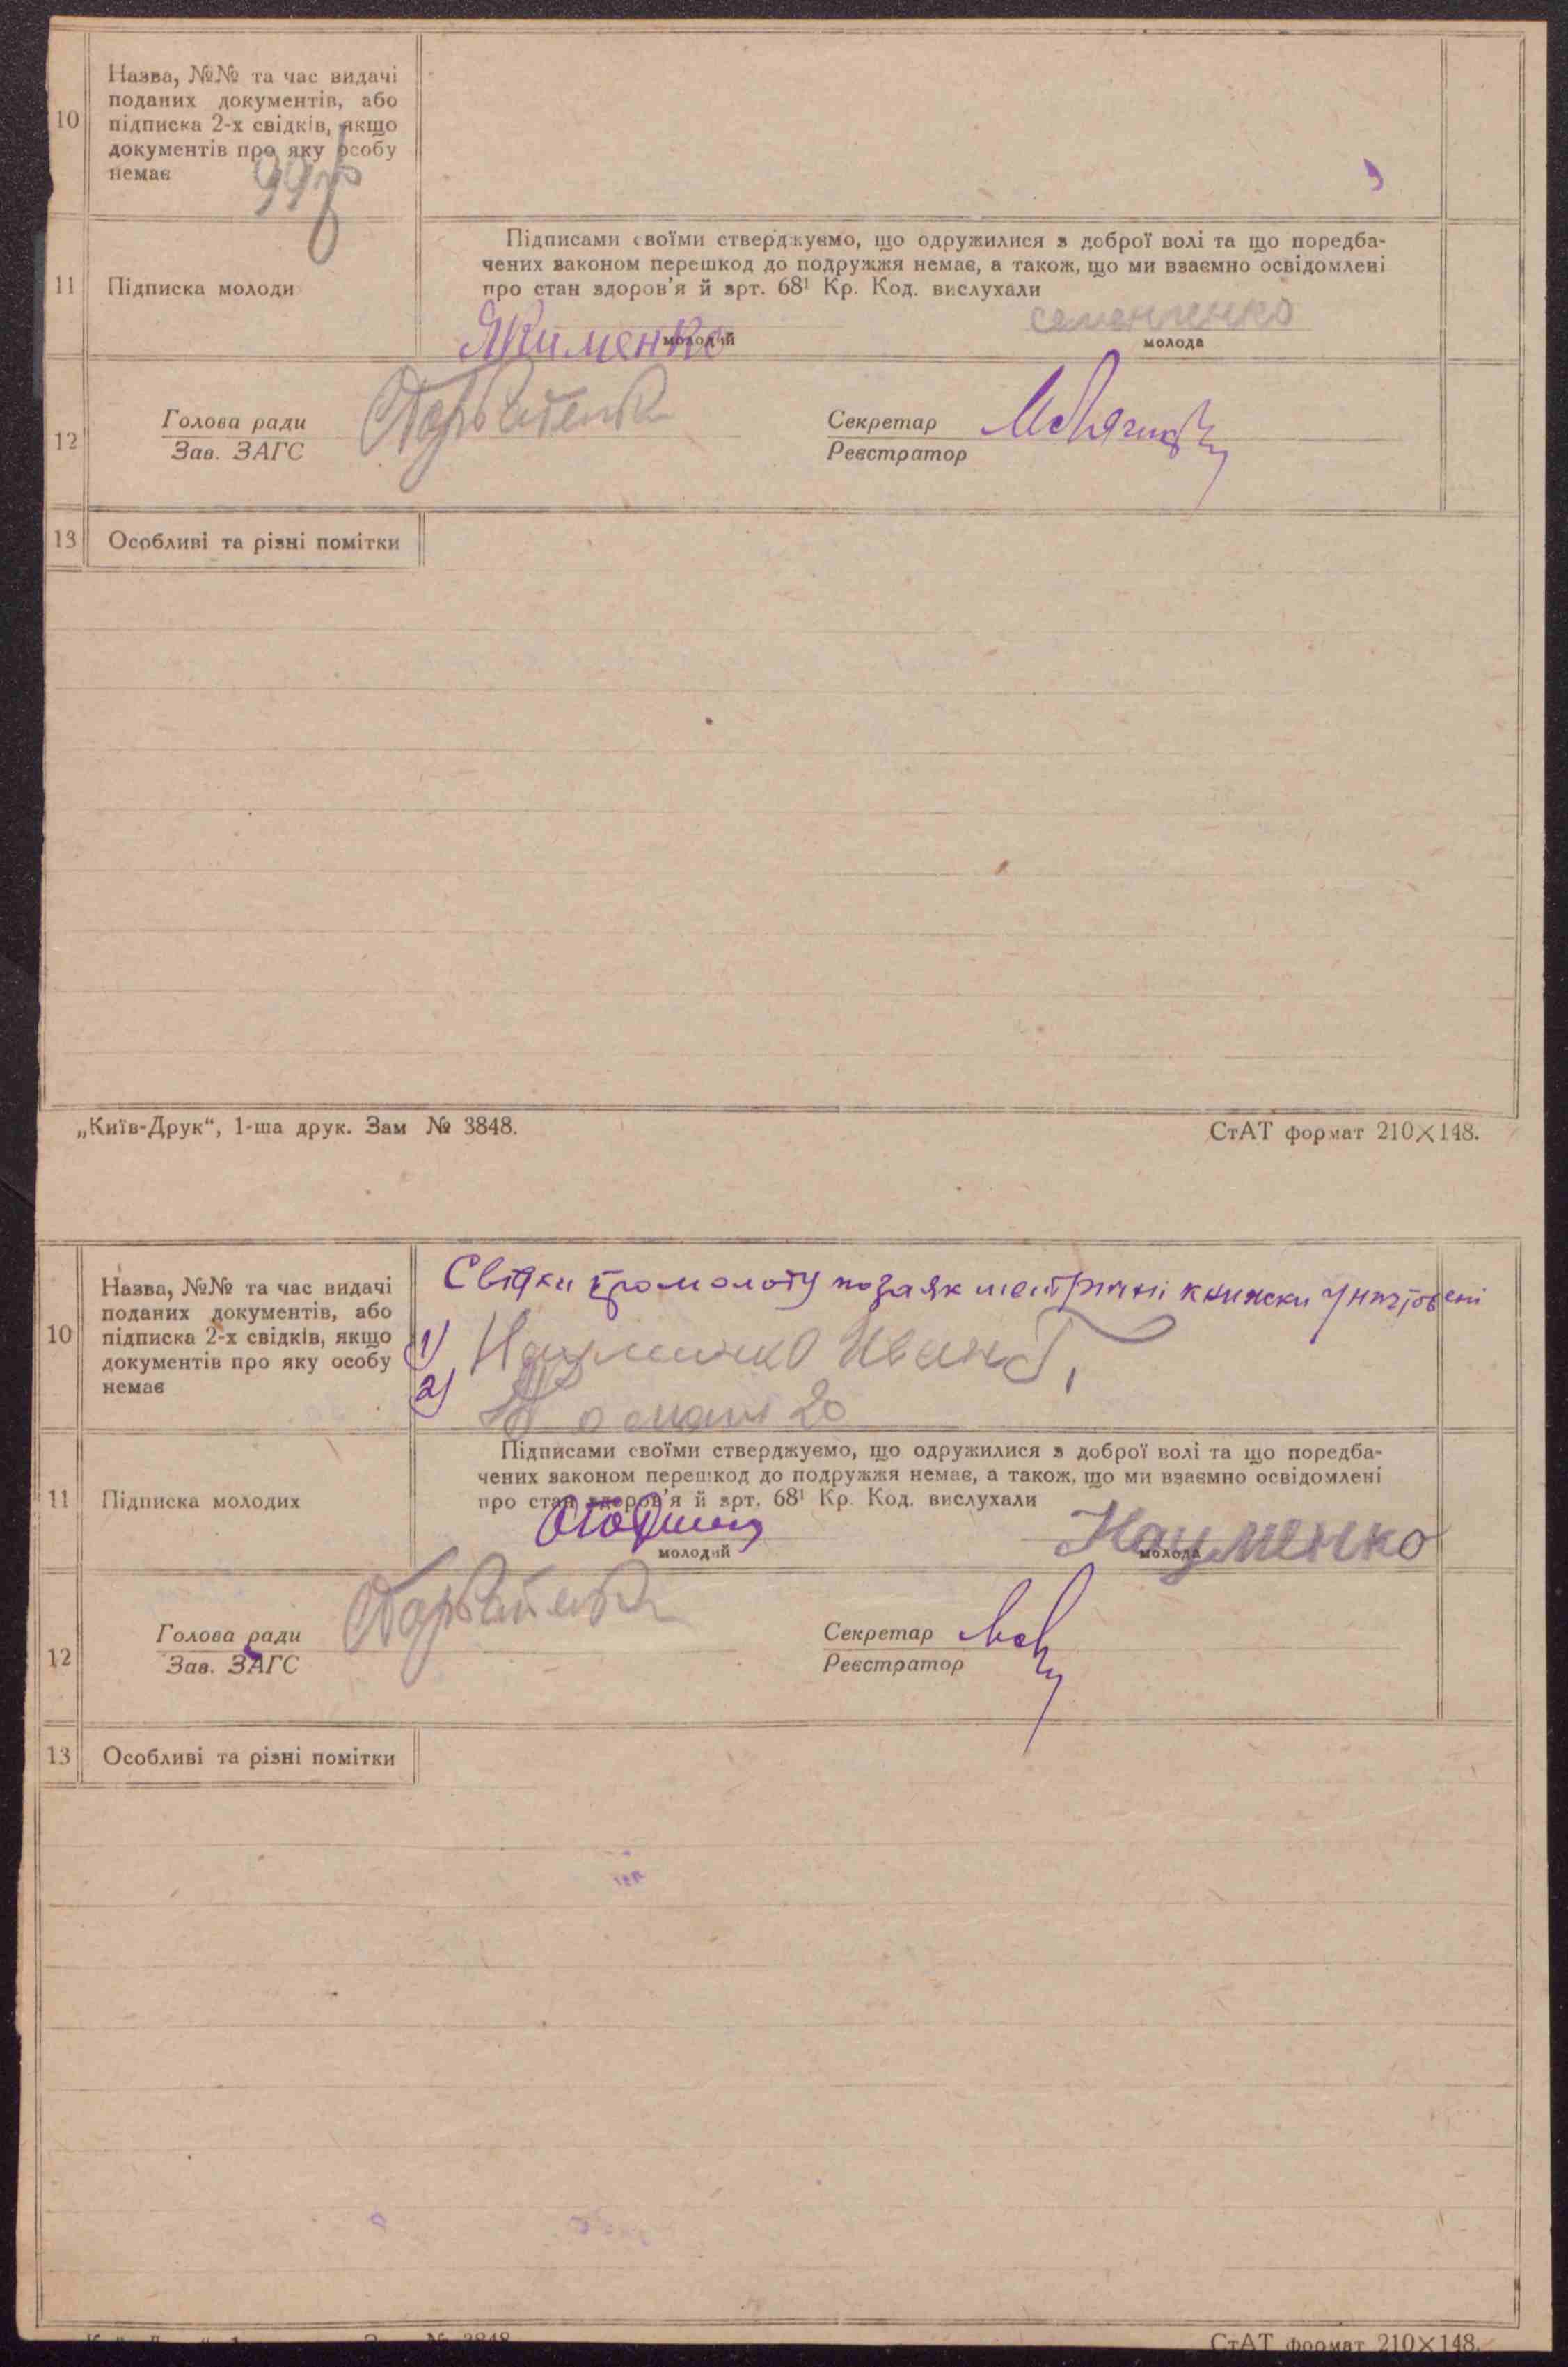 10
Назва, №№ та час видачі
поданих документів, або
підписка 2-х свідків, якщо
документів про яку особу
немає
99
11
Підписка молоди
Підписами своїми стверджуємо, що одружилися з доброї волі та що поредба-
чених законом перешкод до подружжя немає, а також, що ми взаємно освідомлені
про стан здоров'я й арт. 68¹ Кр. Код. вислухали
Якименко
молодий
семенченко
молода
12
Голова ради
Зав. ЗАГС
Секретар
Реєстратор
13
Особливі та різні помітки
„Київ-Друк“, 1-ша друк. Зам № 3848.
СтАТ формат 210×148.
10
Назва, №№ та час видачі
поданих документів, або
підписка 2-х свідків, якщо
документів про яку особу
немає
Свідки позаяк метричні книжски
1) Науменко Иван
2)
11
Підписка молодих
Підписами своїми стверджуємо, що одружилися з доброї волі та що поредба-
чених законом перешкод до подружжя немає, а також, що ми взаємно освідомлені
про стан здоров'я й арт. 68¹ Кр. Код. вислухали
молодий
Науменко
молода
12
Голова ради
Зав. ЗАГС
Секретар
Реєстратор
13
Особливі та різні помітки
СтАТ формат 210×148.